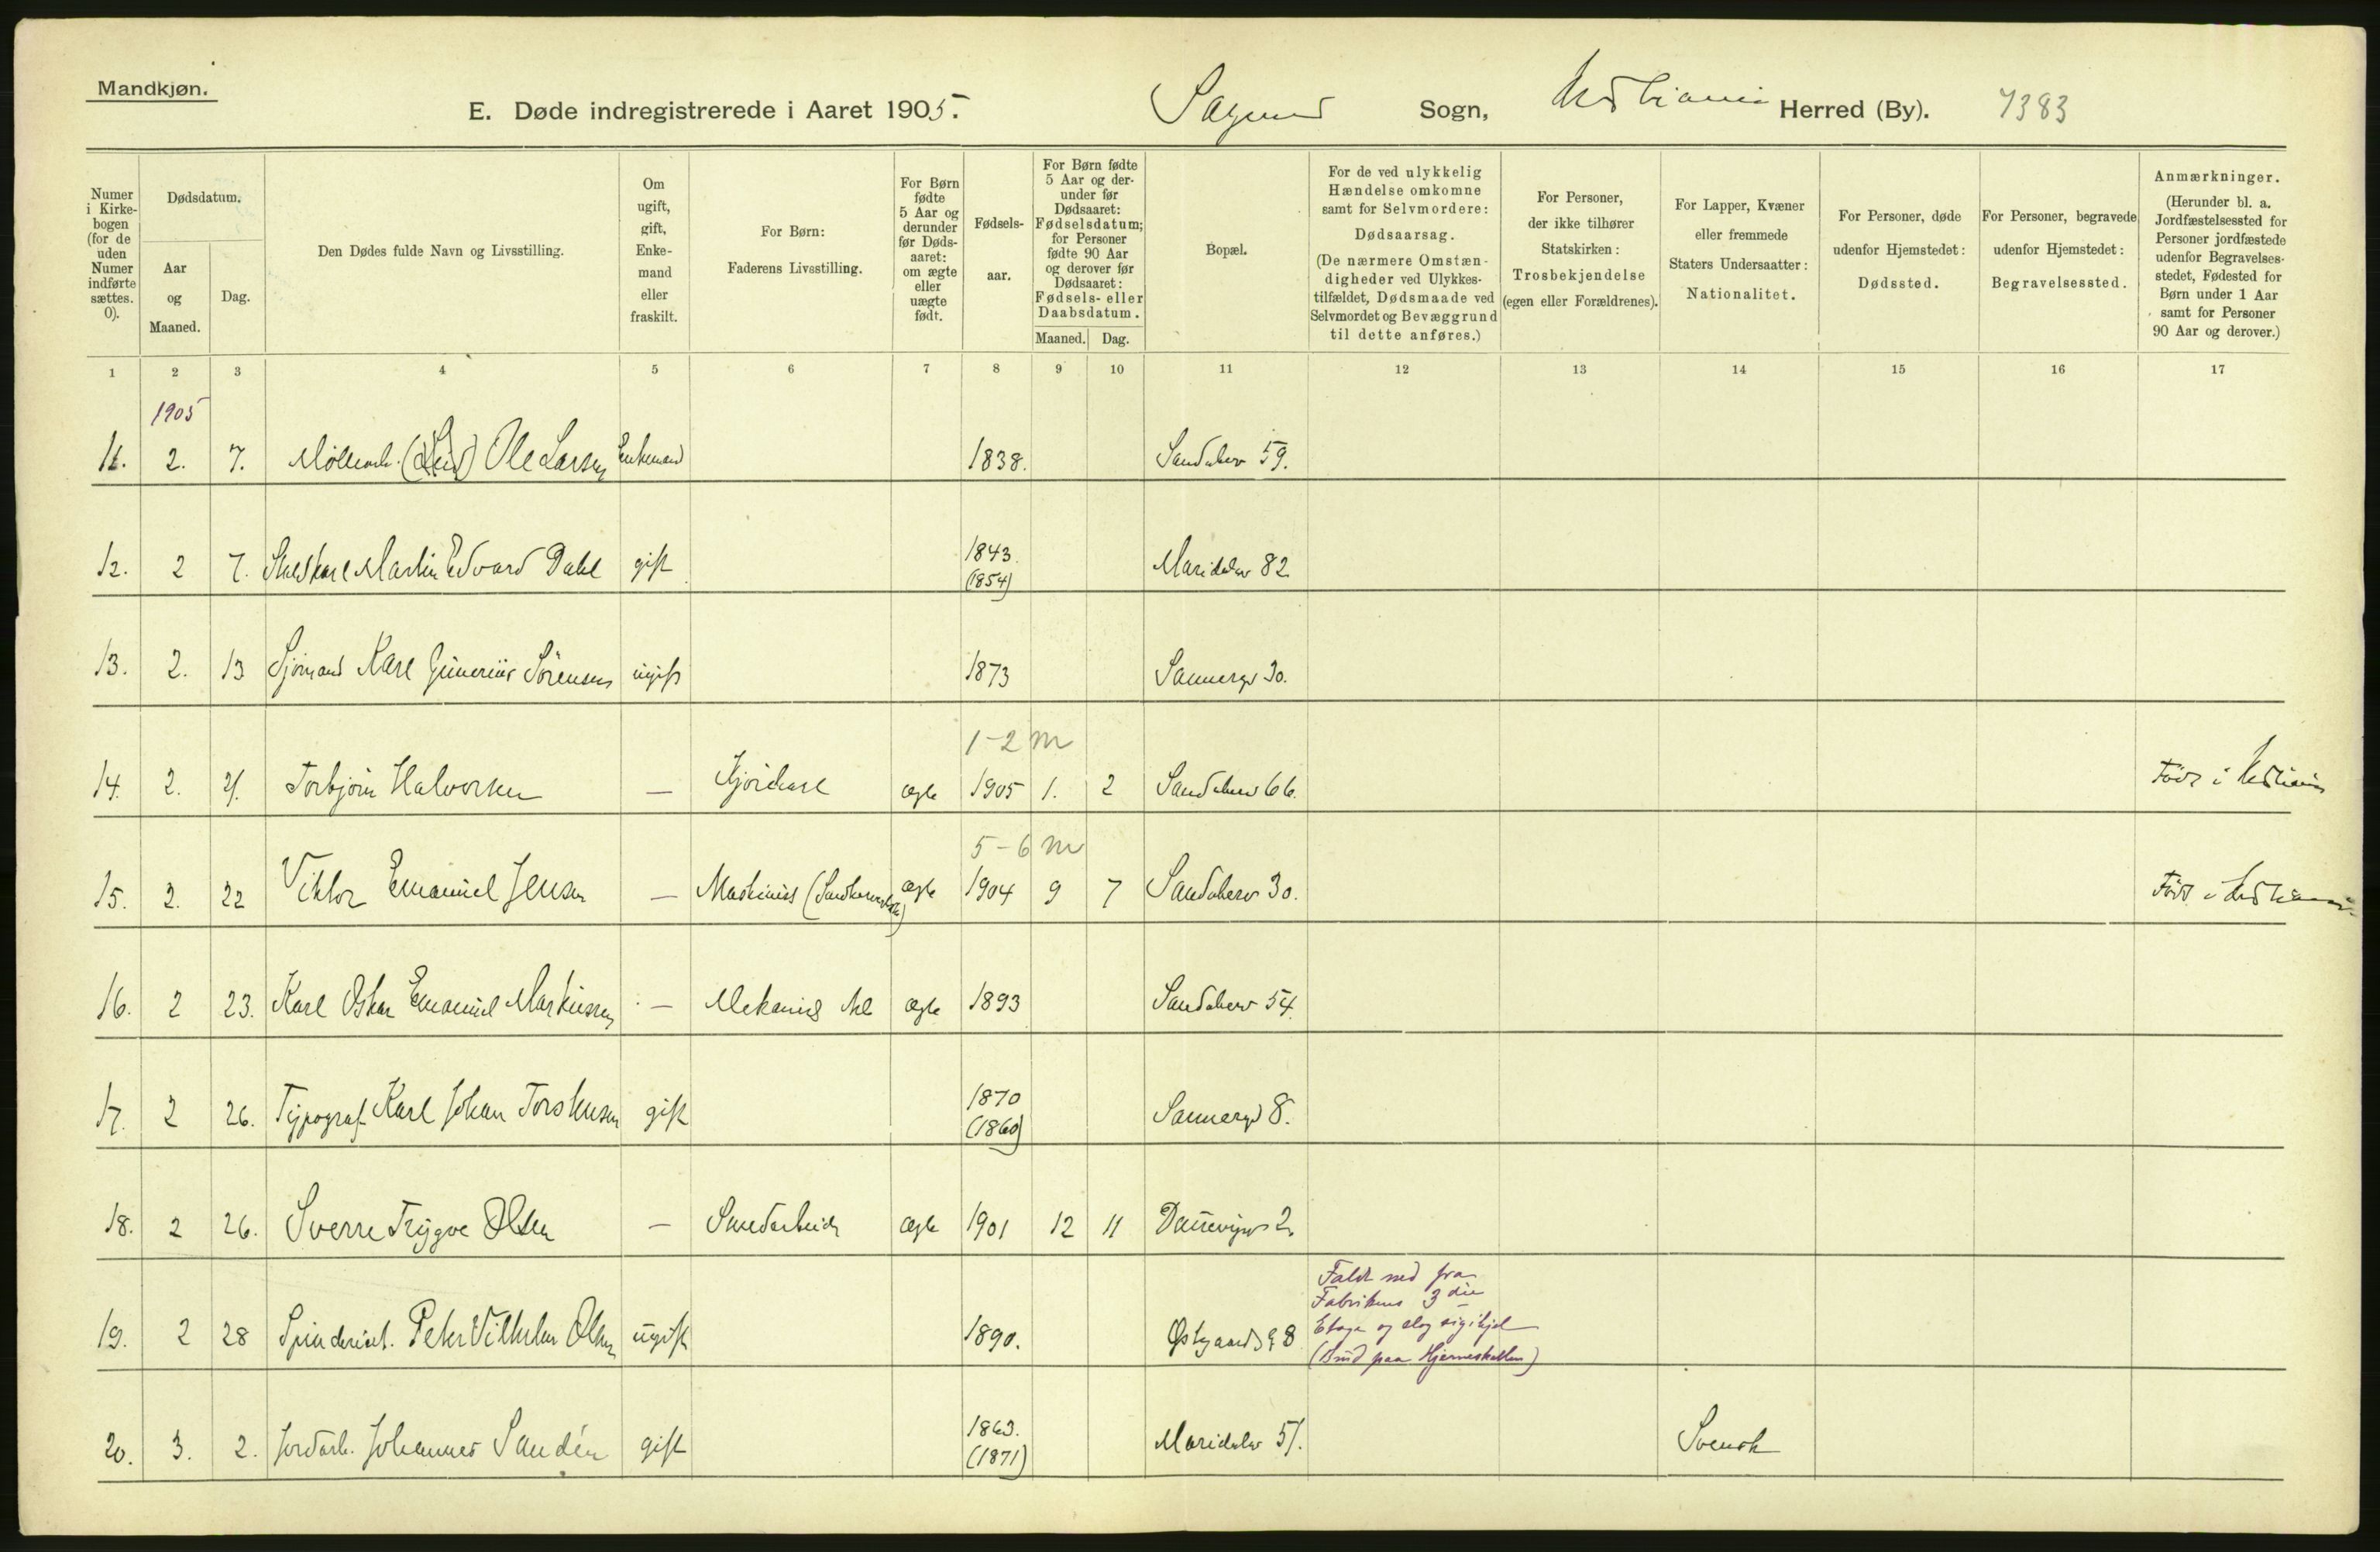 Mandkjøn.
E. Døde indregistrerede i Aaret 1905. Sogn, Kristiania Herred (By). 7383
Numer i Kirkebogen (for de uden Numer indførte sættes. 0).
Dødsdatum.
Aar og Maaned.
Dag.
Den Dødes fulde Navn og Livsstilling.
Om ugift, gift, Enkemand eller fraskilt.
For Børn: Faderens Livsstilling.
For Børn fødte 5 Aar og derunder før Dødsaaret: om ægte eller uægte født.
Fødselsaar.
For Børn fødte 5 Aar og derunder før Dødsaaret: Fødselsdatum; for Personer fødte 90 Aar og derover før Dødsaaret: Fødsels- eller Daabsdatum.
Maaned. Dag.
Bopæl.
For de ved ulykkelig Hændelse omkomne samt for Selvmordere: Dødsaarsag. (De nærmere Omstændigheder ved Ulykkestilfældet, Dødsmaade ved Selvmordet og Bevæggrund til dette anføres.)
For Personer, der ikke tilhører Statskirken: Trosbekjendelse (egen eller Forældrenes).
For Lapper, Kvæner eller fremmede Staters Undersaatter: Nationalitet.
For Personer, døde udenfor Hjemstedet: Dødssted.
For Personer, begravede udenfor Hjemstedet: Begravelsessted.
Anmærkninger. (Herunder bl. a. Jordfæstelsessted for Personer jordfæstede udenfor Begravelsesstedet, Fødested for Børn under 1 Aar samt for Personer 90 Aar og derover.)
1 2 3 4 5 6 7 8 9 10 11 12 13 14 15 16 17
1905
11. 2. 7. Ole Larsen Enkemand 1838. 59.
12. 2 7. Staldkarl Martin Edvard Dahl gift 1843. (1854) Maridalsv 82
13. 2. 13 Sjømand Karl Gunerius Sörensen ugift 1873 Sannergd 30.
1-2 m
14. 2. 21. Torbjörn Halvorsen — Kjörekarl ægte 1905 1. 2 66. Född i Kristiania
5-6 m
15. 2. 22 Viktor Emanuel Jensen — Maskinist ægte 1904 9 7 30. Född i Kristiania
16. 2 23. Karl Oskar Emanuel Markussen — ægte 1893 54.
17. 2 26. Typograf Karl Johan Torstensen gift 1870 (1860) Sannergd 8.
18. 2 26. Sverre Trygve Olsen — Smedarbeider ægte 1901 12 11 2.
19. 2 28 Peter Vilhelm Olsen ugift 1890. 8 Faldt ned fra
Fabrikens 3die
Etage og slog sig ihjel
(Brud paa Hjerneskallen)
20. 3. 2. Jordarb. Johannes Sandén gift 1863. (1871) Maridalsv 51. Svensk